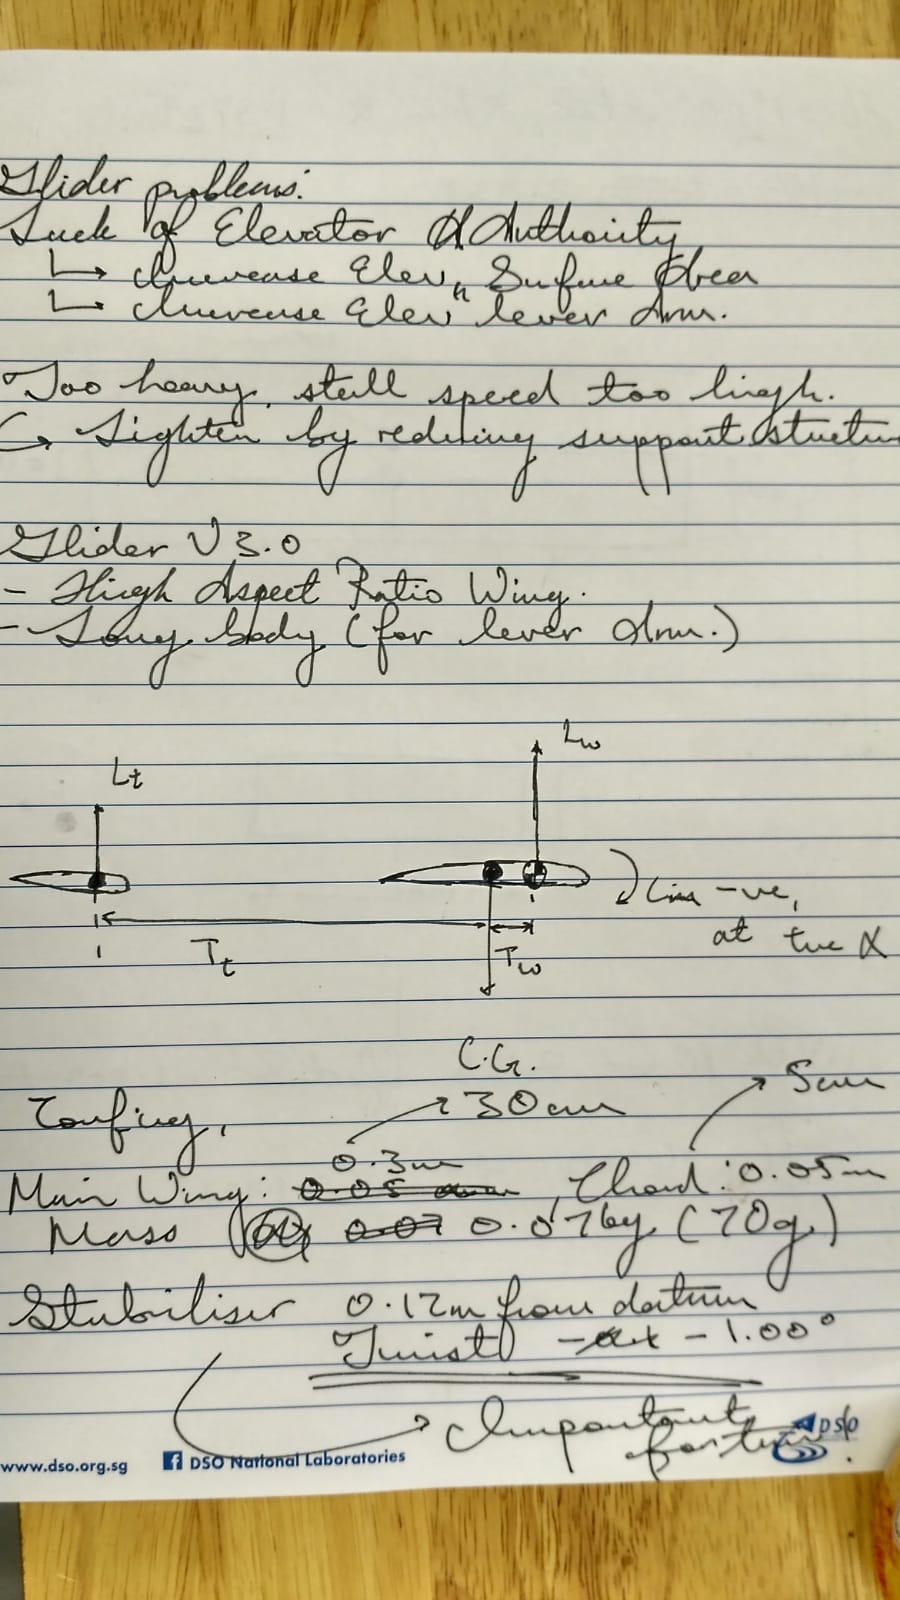 Glider problems:
Lack of Elevator Authority
↳ Increase Elevn Surface Area
↳ Increase Elevn lever Arm.
Too heavy, stall speed too high.
↳ Lighten by reducing support
Glider V3.0
- High Aspect Ratio Wing.
- Long body (for lever Arm.)
Lw
Lt
Cm -ve,
at +ve α
Tt
Tw
C.G.
5cm
Config,
30cm
0.3m
Main Wing: , Chord: 0.05m
Mass 0.07kg (70g)
Stabiliser 0.12m from datum
Twist -1.00°
Important
for trim!
DSO
www.dso.org.sg
DSO National Laboratories